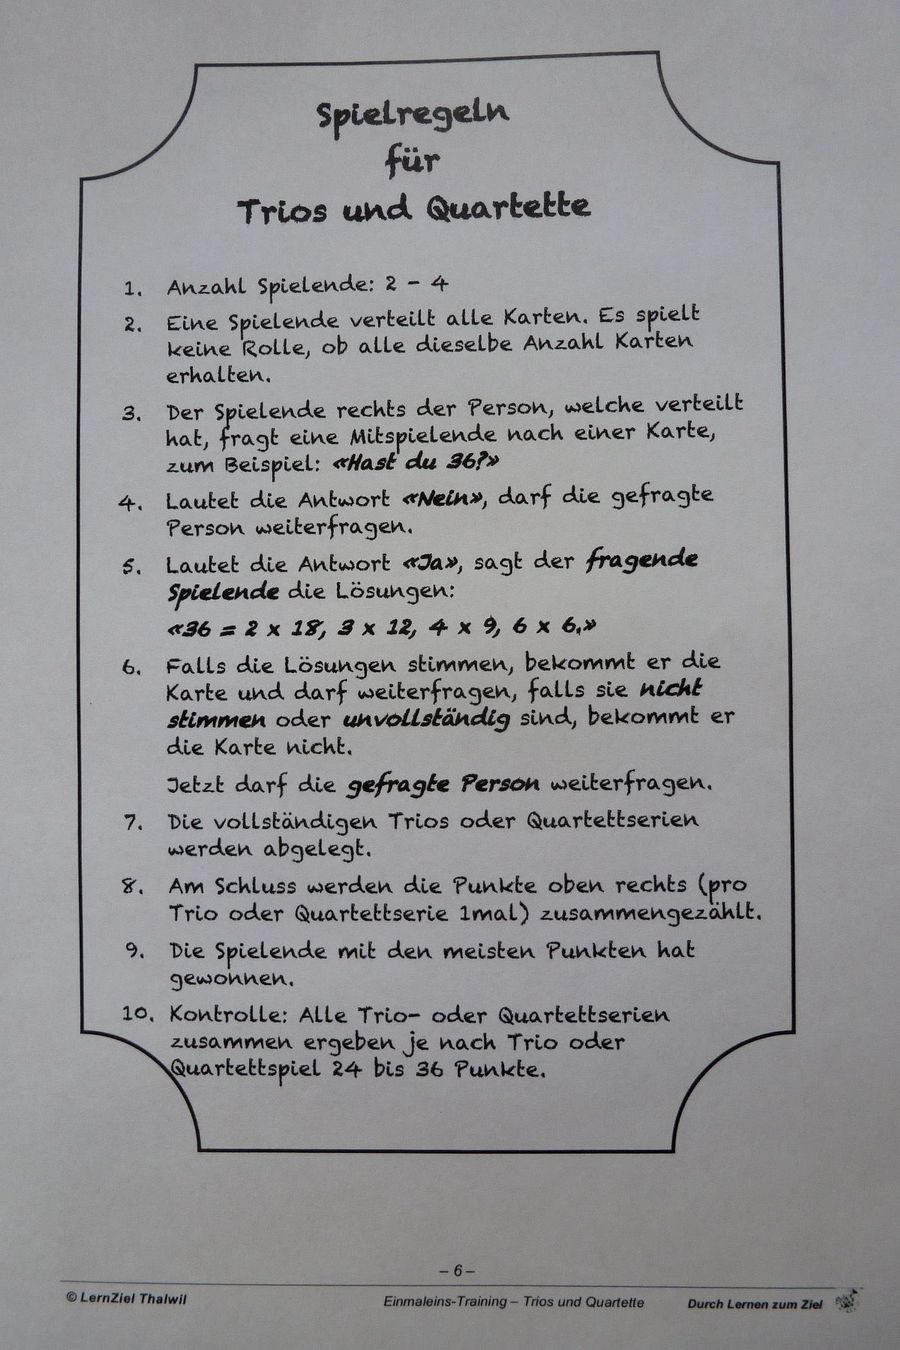 Spielregeln
für
Trios und Quartette
1. Anzahl Spielende: 2 – 4
2. Eine Spielende verteilt alle Karten. Es spielt
keine Rolle, ob alle dieselbe Anzahl Karten
erhalten.
3. Der Spielende rechts der Person, welche verteilt
hat, fragt eine Mitspielende nach einer Karte,
zum Beispiel: «Hast du 36?»
4. Lautet die Antwort «Nein», darf die gefragte
Person weiterfragen.
5. Lautet die Antwort «Ja», sagt der fragende
Spielende die Lösungen:
«36 = 2 x 18, 3 x 12, 4 x 9, 6 x 6.»
6. Falls die Lösungen stimmen, bekommt er die
Karte und darf weiterfragen, falls sie nicht
stimmen oder unvollständig sind, bekommt er
die Karte nicht.
Jetzt darf die gefragte Person weiterfragen.
7. Die vollständigen Trios oder Quartettserien
werden abgelegt.
8. Am Schluss werden die Punkte oben rechts (pro
Trio oder Quartettserie 1mal) zusammengezählt.
9. Die Spielende mit den meisten Punkten hat
gewonnen.
10. Kontrolle: Alle Trio- oder Quartettserien
zusammen ergeben je nach Trio oder
Quartettspiel 24 bis 36 Punkte.
– 6 –
© LernZiel Thalwil Einmaleins-Training – Trios und Quartette Durch Lernen zum Ziel